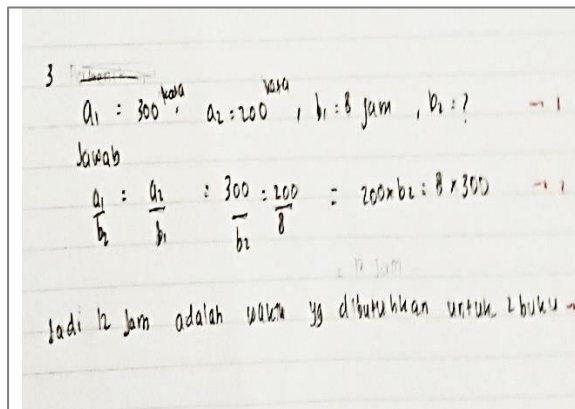 3
a₁ = 300 kata, a₂ = 200 kata, b₁ = 8 jam, b₂ = ? → 1
Jawab
a₁/b₂ = a₂/b₁ = 300/b₂ = 200/8 = 200 x b₂ = 8 x 300 → 1
= 12 jam
Jadi 12 jam adalah waktu yg dibutuhkan untuk 2 buku